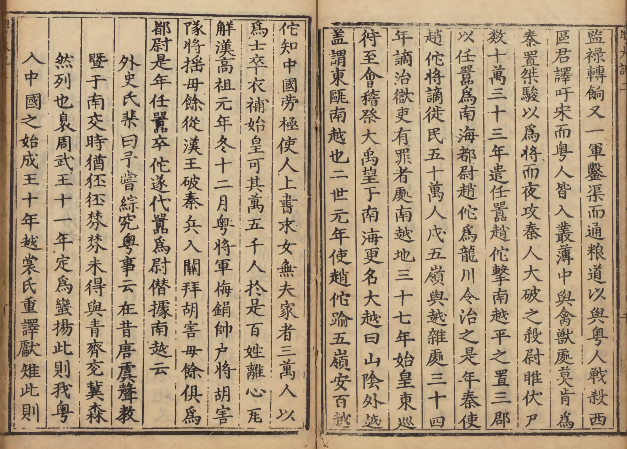 監祿轉餉又一軍鑿渠而通粮道以與粤人戰殺西
區君譯吁宋而粤人皆入叢薄中與禽獸處莫肯爲
秦置桀駿以爲將而夜攻秦人大破之殺尉睢伏尸
數十萬三十三年遣任囂趙佗擊南越平之置三郡
以任囂爲南海都尉趙佗爲龍川令治之是年秦使
趙佗將謫徙民五十萬人戍五嶺與越雜處三十四
年謫治獄吏有罪者處南越地三十七年始皇東巡
行至會稽祭大禹望于南海更名大越曰山陰外越
蓋謂東甌南越也二世元年使趙佗踰五嶺安百
佗知中國勞極使人上書求女無夫家者三萬人以
爲士卒衣補始皇可其萬五千人於是百姓離心瓦
解漢高祖元年冬十二月粤將軍梅鋗帥户將胡害
隊將摇毋餘從漢王破秦兵入關拜胡害毋餘俱爲
都尉是年任囂卒佗遂代囂爲尉僭據南越云
外史氏棐曰予嘗綜究粤事云在昔唐虞聲教
暨于南交時猶狉狉獉獉未得與青齊兖冀森
然列也衷周武王十一年定爲蠻揚此則我粤
入中國之始成王十年越裳氏重譯獻雉此則